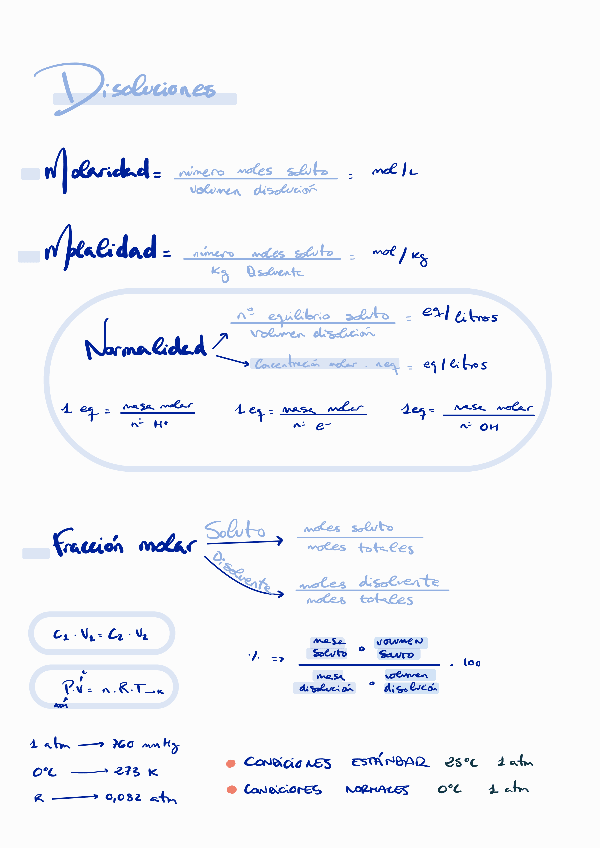 Disoluciones
Molaridad = número moles soluto / volumen disolución = mol/L
Molalidad = número moles soluto / Kg Disolvente = mol/Kg
Normalidad
nº equilibrio soluto / volumen disolución = eq/litros
Concentración molar · neq = eq/litros
1 eq = masa molar / nº H+ 1 eq = masa molar / nº e- 1 eq = masa molar / nº OH
Fracción molar
Soluto → moles soluto / moles totales
Disolvente → moles disolvente / moles totales
C1 · V1 = C2 · V2
% => masa soluto o volumen soluto / masa disolución o volumen disolución · 100
L
P.V = n.R.T→K
atm
1 atm → 760 mmHg
0ºC → 273 K
R → 0,082 atm
CONDICIONES ESTÁNDAR 25ºC 1 atm
CONDICIONES NORMALES 0ºC 1 atm